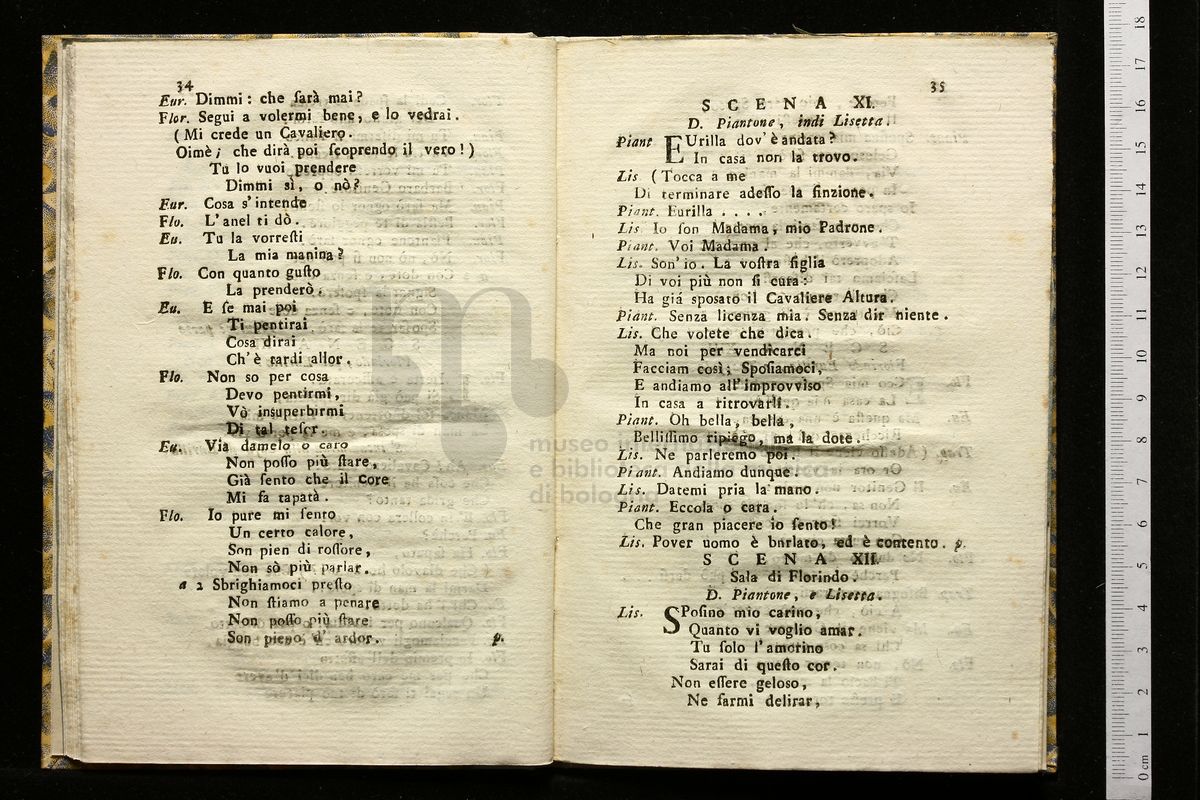 34
Eur. Dimmi: che ſarà mai?
Flor. Segui a volermi bene, e lo vedrai.
(Mi crede un Cavaliero.
Oimè; che dirà poi ſcoprendo il vero!)
Tu lo vuoi prendere
Dimmi sì, o nò?
Eur. Coſa s'intende
Flo. L'anel ti dò.
Eu. Tu la vorreſti
La mia manina?
Flo. Con quanto guſto
La prenderò.
Eu. E ſe mai poi
Ti pentirai
Coſa dirai
Ch'è tardi allor.
Flo. Non so per coſa
Devo pentirmi,
Vò inſuperbirmi
Di tal teſer.
Eu. Via damelo o caro
Non poſſo più ſtare,
Già ſento che il core
Mi fa tapatà.
Flo. Io pure mi ſento
Un certo calore,
Son pien di roſſore,
Non sò più parlar.
a 2 Sbrighiamoci preſto
Non ſtiamo a penare
Non poſſo più ſtare
Son pieno d' ardor. p.
35
SCENA XI.
D. Piantone, indi Lisetta.
Piant EUrilla dov' è andata?
In caſa non la trovo.
Lis (Tocca a me
Di terminare adeſſo la finzione.
Piant. Eurilla . . . .
Lis. Io ſon Madama, mio Padrone.
Piant. Voi Madama!
Lis. Son' io. La voſtra figlia
Di voi più non ſi cura:
Ha giá sposato il Cavaliere Altura.
Piant. Senza licenza mia. Senza dir niente.
Lis. Che volete che dica.
Ma noi per vendicarci
Facciam così; Spoſiamoci,
E andiamo all' improvviso
In casa a ritrovarli.
Piant. Oh bella, bella,
Belliſſimo ripiego, ma la dote.
Lis. Ne parleremo poi.
Piant. Andiamo dunque.
Lis. Datemi pria la mano.
Piant. Eccola o cara.
Che gran piacere io ſento!
Lis. Pover uomo è burlato, ed è contento. p.
SCENA XII.
Sala di Florindo.
D. Piantone, e Lisetta.
Lis. SPoſino mio carino,
Quanto vi voglio amar.
Tu ſolo l'amorino
Sarai di queſto cor.
Non eſſere geloso,
Ne farmi delirar,
museo
e biblio
di bologna